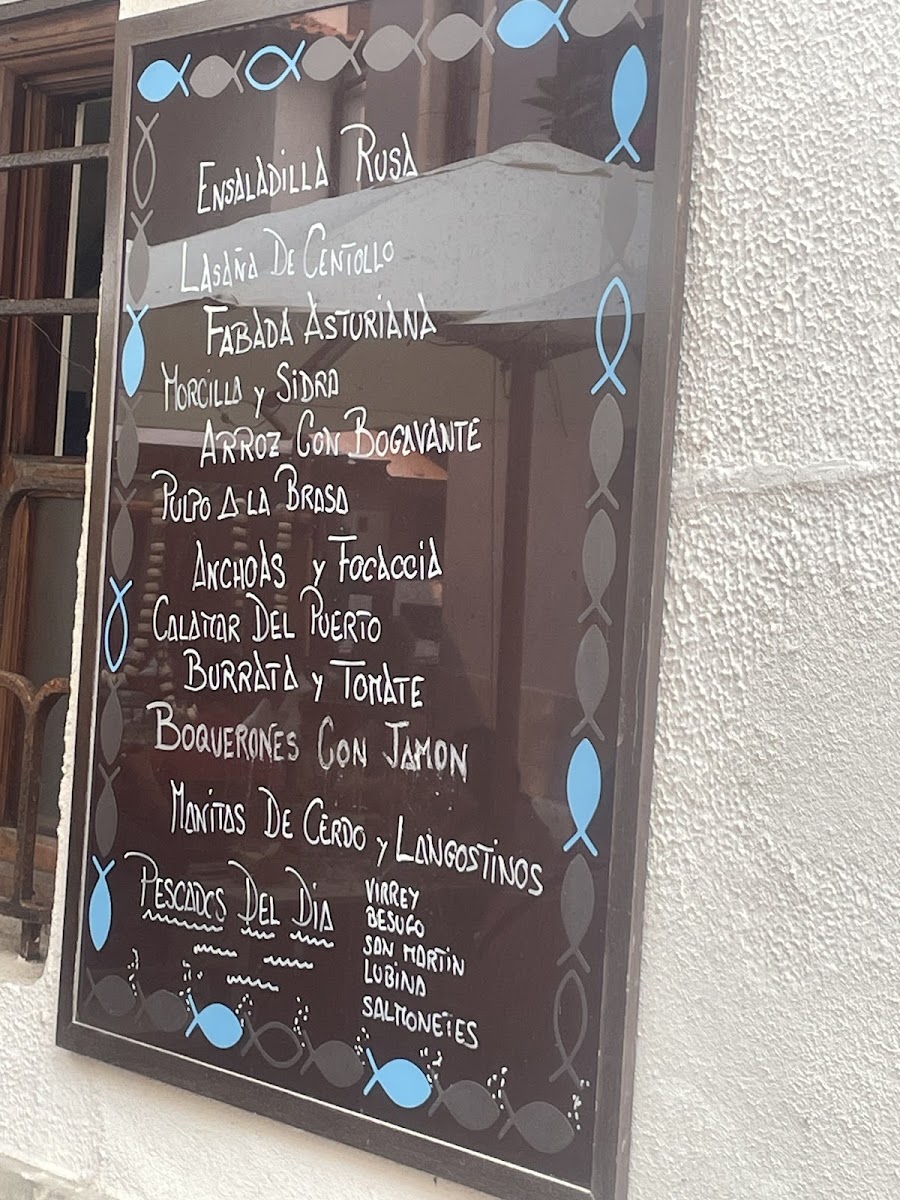 ENSALADILLA RUSA
LASAÑA DE CENTOLLO
FABADA ASTURIANA
MORCILLA y SIDRA
ARROZ CON BOGAVANTE
PULPO A LA BRASA
ANCHOAS y FOCACCIA
CALAMAR DEL PUERTO
BURRATA y TOMATE
BOQUERONES CON JAMON
MANITAS DE CERDO y LANGOSTINOS
PESCADOS DEL DIA
VIRREY
BESUGO
SAN MARTIN
LUBINA
SALMONETES